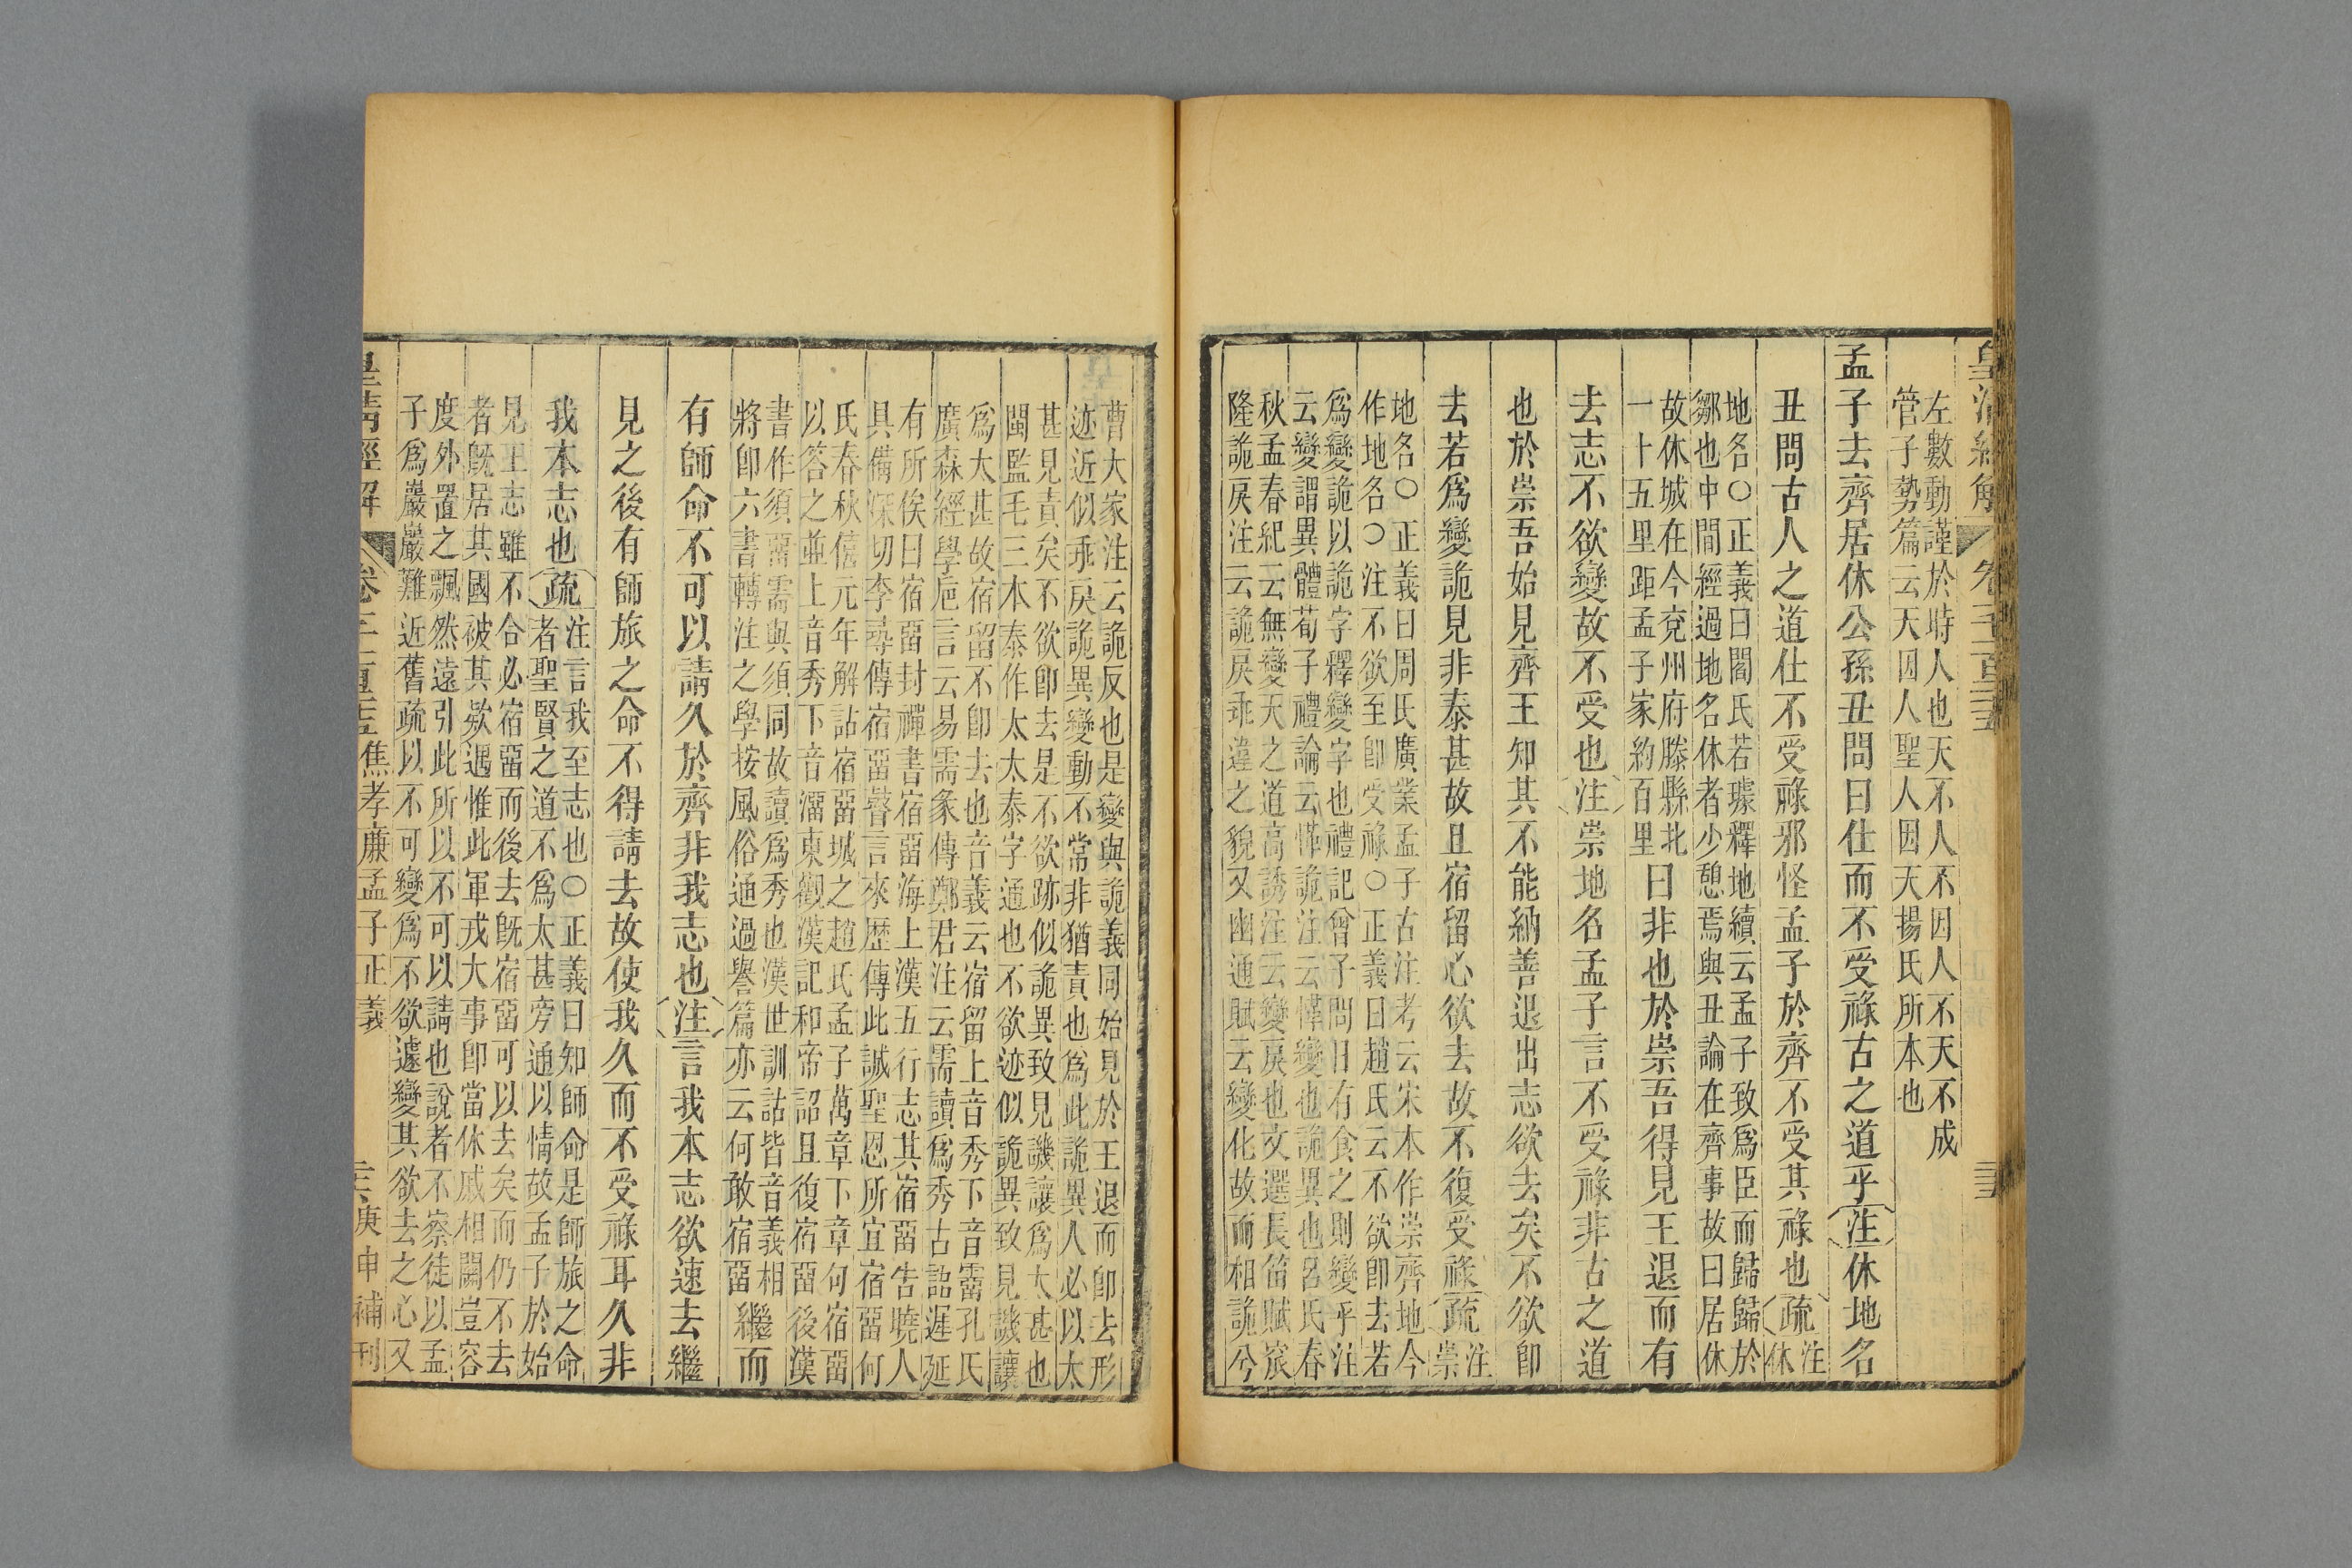 皇清經解
左數動謹於時人也天不人不因人不天不成
管子勢篇云天因人聖人因天揚氏所本也
孟子去齊居休公孫丑問曰仕而不受祿古之道乎注休地名
丑問古人之道仕不受祿邪怪孟子於齊不受其祿也疏注休
地名○正義曰閻氏若璩釋地續云孟子致爲臣而歸歸於
鄒也中間經過地名休者少憩焉與丑論在齊事故曰居休
故休城在今兗州府滕縣北
一十五里距孟子家約百里
曰非也於崇吾得見王退而有
去志不欲變故不受也注崇地名孟子言不受祿非古之道
也於崇吾始見齊王知其不能納善退出志欲去矣不欲卽
去若爲變詭見非泰甚故且宿留心欲去故不復受祿疏注崇
地名○正義曰周氏廣業孟子古注考云宋本作崇齊地今
作地名○注不欲至卽受祿○正義曰趙氏云不欲卽去若
爲變詭以詭字釋變字也禮記曾子問曰有食之則變乎注
云變謂異體荀子禮論云愅詭注云愅變也詭異也呂氏春
秋孟春紀云無變天之道高誘注云變戾也文選長笛賦窊
隆詭戾注云詭戾乖違之貌又幽通賦云變化故而相詭兮
曹大家注云詭反也是變與詭義同始見於王退而卽去形
迹近似乖戾詭異變動不常非猶責也爲此詭異人必以太
甚見責矣不欲卽去是不欲跡似詭異致見譏讓爲太甚也
閩監毛三本泰作太太泰字通也不欲迹似詭異致見譏讓
爲太甚故宿留不卽去也音義云宿留上音秀下音霤孔氏
廣森經學巵言云易需彖傳鄭君注云需讀爲秀古詔遲延
有所俟曰宿畱封禪書宿畱海上漢五行志其宿畱告曉人
具備深切李尋傳宿畱瞽言來歷傳此誠聖恩所宜宿畱何
氏春秋僖元年解詁宿畱城之趙氏孟子萬章下章句宿畱
以答之並上音秀下音溜東觀漢記和帝詔且復宿畱後漢
書作須畱需與須同故讀爲秀也漢世訓詁皆音義相
將卽六書轉注之學按風俗通過譽篇亦云何敢宿畱
繼而
有師命不可以請久於齊非我志也注言我本志欲速去繼
見之後有師旅之命不得請去故使我久而不受祿耳久非
我本志也疏
注言我至志也○正義曰知師命是師旅之命
者聖賢之道不爲太甚旁通以情故孟子於始
見王志雖不合必宿畱而後去旣宿畱可以去矣而仍不去
者旣居其國被其款遇惟此軍戎大事卽當休戚相關豈容
度外置之飄然遠引此所以不可以請也說者不察徒以孟
子爲巖巖難近舊疏以不可變爲不欲遽變其欲去之心又
皇清經解 卷一千一百二十五 焦孝廉孟子正義 庚申補刊